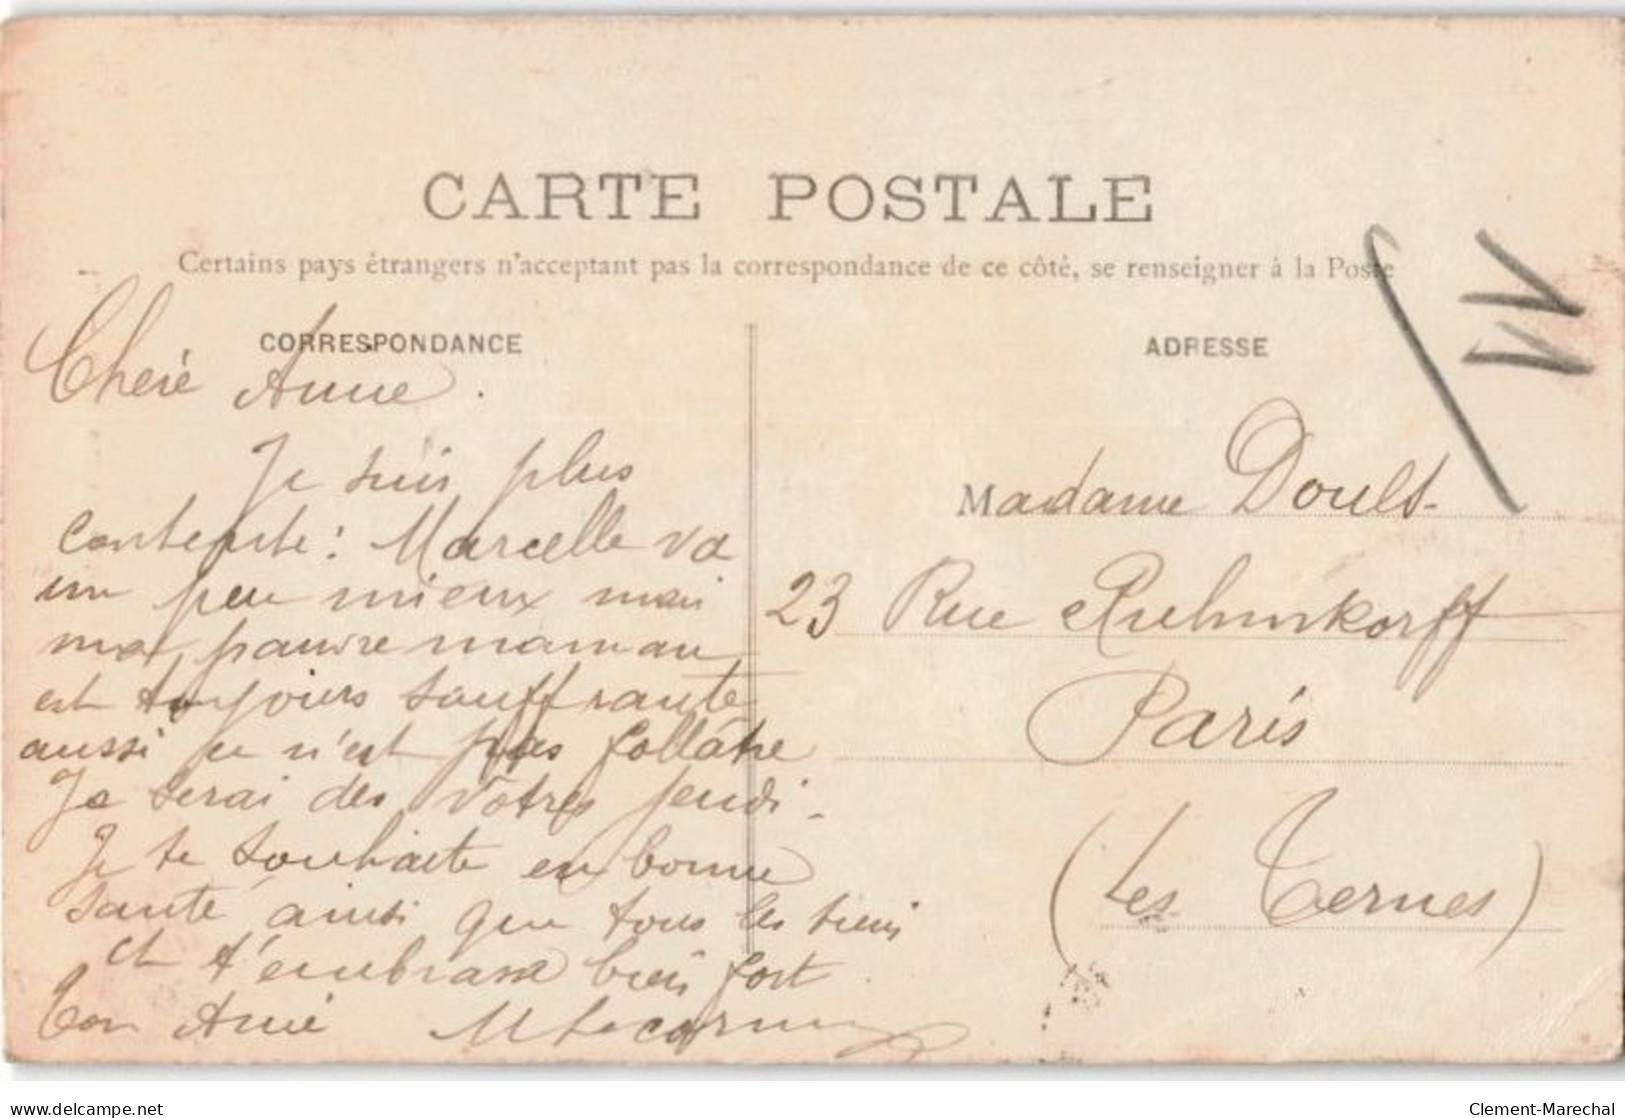 CARTE POSTALE
Certains pays étrangers n'acceptant pas la correspondance de ce côté, se renseigner à la Poste
CORRESPONDANCE
Chère Anne.
Je suis plus
contente: Marcelle va
un peu mieux mais
ma pauvre maman
est toujours souffrante
aussi ce n'est pas follâtre
Je serai des vôtres jeudi-
Je te souhaite en bonne
santé ainsi que tous les tiens
et t'embrasse bien fort.
Ton Amie
ADRESSE
Madame Doult
23 Rue Ruhmkorff
Paris
(Les Ternes)
delcampe.net
Clement-Marechal